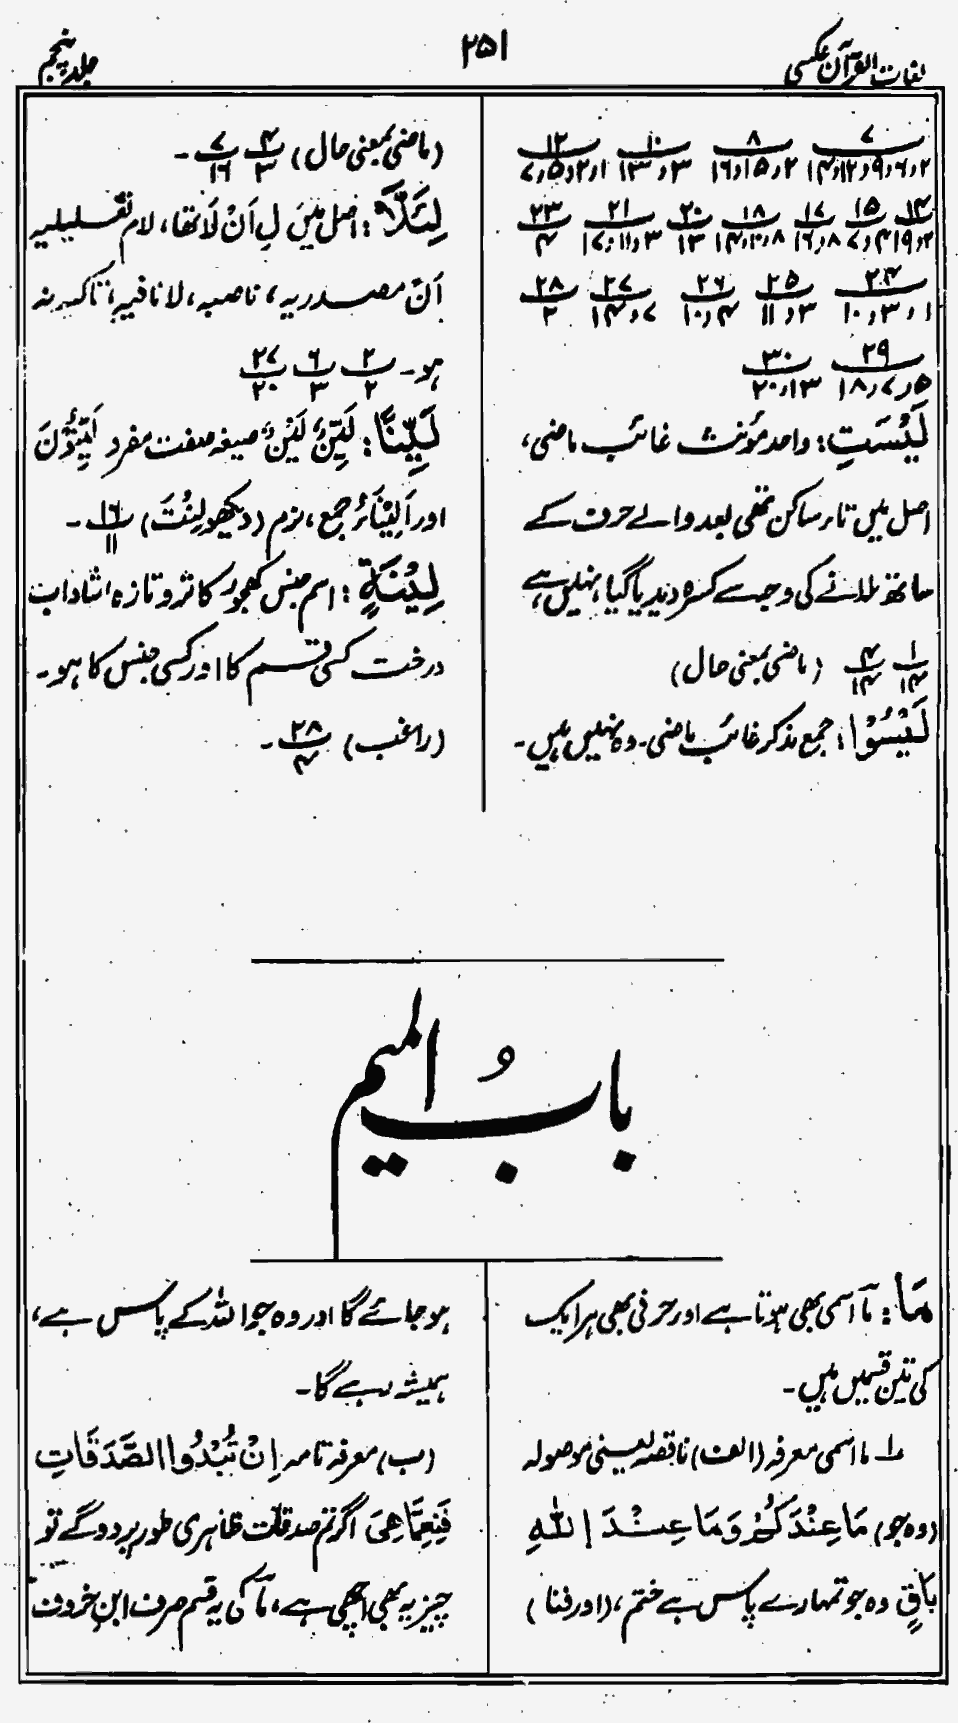 لغات القرآن عکسی ۲۵۱ جلد پنجم
۷ ۸ ۱۰ ۱۲
۲و۶و۹و۱۲و۱۴ ۲و۱۵و۱۶ ۳و۱۳ ۱و۲و۵و۷
۱۴ ۱۵ ۱۷ ۱۸ ۲۰ ۲۱ ۲۳
۲و۱۹ ۴و۷ ۸و۱۶ ۸و۱۰و۱۴ ۱۳ ۳و۱۱و۱۷ ۴
۲۴ ۲۵ ۲۶ ۲۷ ۲۸
۱و۳و۱۰ ۳و۱۱ ۴و۱۰ ۷و۱۴ ۲
۲۹ ۳۰
۵و۷و۱۸ ۱۳و۲۰
لَيْسَتِ: واحد مؤنث غائب ماضی،
اصل میں تاء ساکن تھی بعد والے حرف کے
ساتھ ملانے کی وجہ سے کسرہ دیدیا گیا، نہیں ہے،
۱ ۴ (ماضی بمعنی حال)
۱۴ ۱۴
لَيْسُوْا: جمع مذکر غائب ماضی۔ وہ نہیں ہیں۔
(ماضی بمعنی حال) ۴ ۷ ۔
۳ ۱۶
لِئَلَّا: اصل میں لِ اَنْ لَا تھا، لام تعلیلیہ
اَنْ مصدریہ، ناصبہ، لا نافیہ، تاکہ نہ
ہو۔ ۲ ۶ ۲۷
۲ ۳ ۲۰
لَيِّنًا: لَيِّنٌ لَيْنٌ صیغہ صفت مفرد لَيِّنُوْنَ
اور اَلْيِنَاءُ جمع، نرم (دیکھو لِنْتَ) ۱۶ ۔
۱۱
لِيْنَةٍ: اسم جنس کھجور کا تر و تازہ شاداب
درخت کسی قسم کا اور کسی جنس کا ہو۔
(راغب) ۲۸ ۔
۴
بابُ المیم
مَا: مَا اسمی بھی ہوتا ہے اور حرفی بھی ہر ایک
کی تین قسمیں ہیں۔
۱۔ ما اسمی معرفہ (الف) ناقصہ یعنی موصولہ
(وہ جو) مَا عِنْدَكُمْ وَمَا عِنْدَ اللّٰهِ
بَاقٍ وہ جو تمہارے پاس ہے ختم، (اور فنا)
ہو جائے گا اور وہ جو اللہ کے پاس ہے،
ہمیشہ رہے گا۔
(ب) معرفہ تامہ اِنْ تُبْدُوا الصَّدَقَاتِ
فَنِعِمَّا هِيَ اگر تم صدقات ظاہری طور پر دو گے تو
چیز یہ بھی اچھی ہے، مَا کی یہ قسم صرف ابن خروف